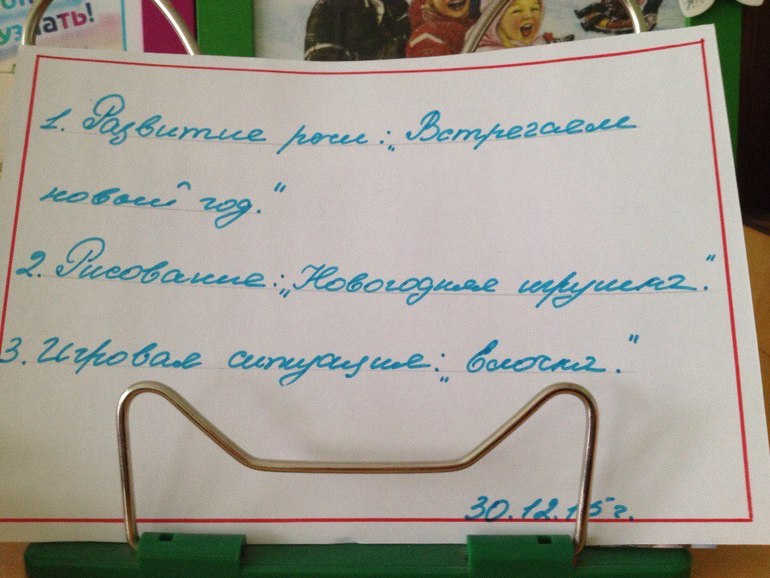 узнать!
1. Развитие речи: „Встречаем
новый год."
2. Рисование: „Новогодняя игрушка."
3. Игровая ситуация: „Елочка."
30.12.15г.